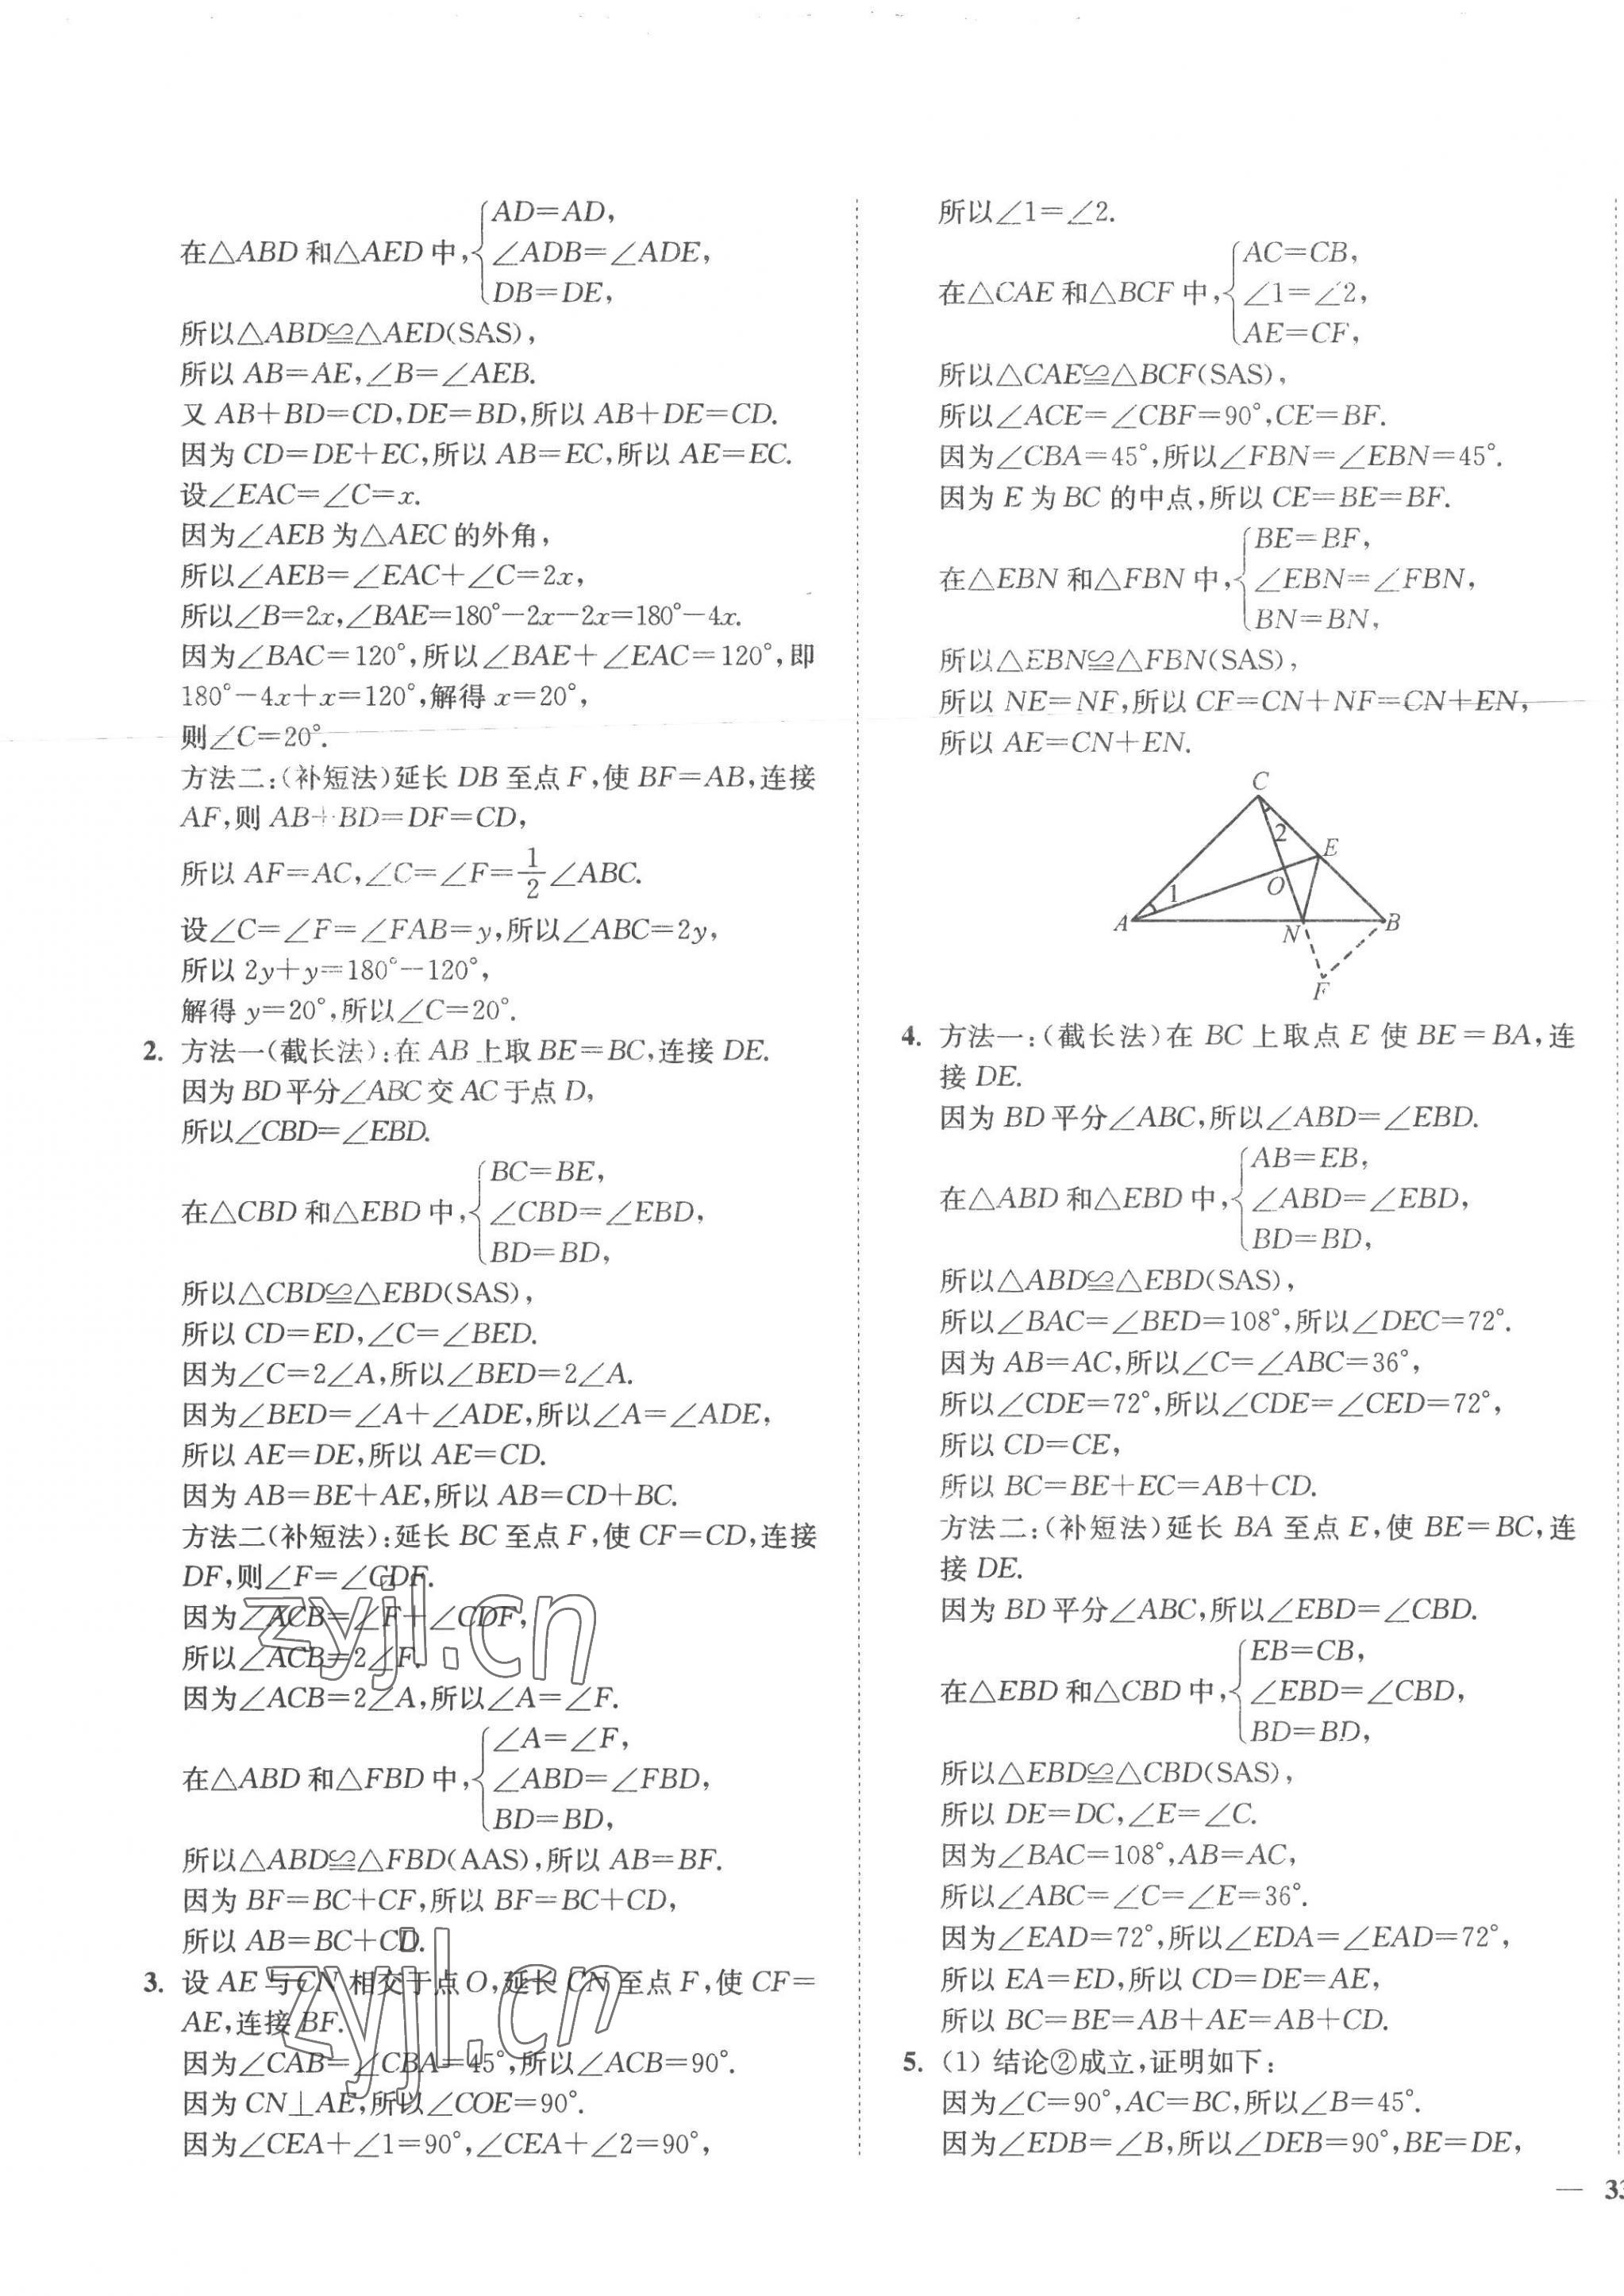 在△ABD 和△AED 中,{AD=AD,
∠ADB=∠ADE,
DB=DE,
所以△ABD≌△AED(SAS),
所以 AB=AE,∠B=∠AEB.
又 AB+BD=CD,DE=BD,所以 AB+DE=CD.
因为 CD=DE+EC,所以 AB=EC,所以 AE=EC.
设∠EAC=∠C=x.
因为∠AEB 为△AEC 的外角,
所以∠AEB=∠EAC+∠C=2x,
所以∠B=2x,∠BAE=180°-2x-2x=180°-4x.
因为∠BAC=120°,所以∠BAE+∠EAC=120°,即
180°-4x+x=120°,解得 x=20°,
则∠C=20°.
方法二:(补短法)延长 DB 至点 F,使 BF=AB,连接
AF,则 AB+BD=DF=CD,
所以 AF=AC,∠C=∠F=1/2∠ABC.
设∠C=∠F=∠FAB=y,所以∠ABC=2y,
所以 2y+y=180°-120°,
解得 y=20°,所以∠C=20°.
2. 方法一(截长法):在 AB 上取 BE=BC,连接 DE.
因为 BD 平分∠ABC 交 AC 于点 D,
所以∠CBD=∠EBD.
在△CBD 和△EBD 中,{BC=BE,
∠CBD=∠EBD,
BD=BD,
所以△CBD≌△EBD(SAS),
所以 CD=ED,∠C=∠BED.
因为∠C=2∠A,所以∠BED=2∠A.
因为∠BED=∠A+∠ADE,所以∠A=∠ADE,
所以 AE=DE,所以 AE=CD.
因为 AB=BE+AE,所以 AB=CD+BC.
方法二(补短法):延长 BC 至点 F,使 CF=CD,连接
DF,则∠F=∠CDF.
因为∠ACB=∠F+∠CDF,
所以∠ACB=2∠F.
因为∠ACB=2∠A,所以∠A=∠F.
在△ABD 和△FBD 中,{∠A=∠F,
∠ABD=∠FBD,
BD=BD,
所以△ABD≌△FBD(AAS),所以 AB=BF.
因为 BF=BC+CF,所以 BF=BC+CD,
所以 AB=BC+CD.
3. 设 AE 与 CN 相交于点 O,延长 CN 至点 F,使 CF=
AE,连接 BF.
因为∠CAB=∠CBA=45°,所以∠ACB=90°.
因为 CN⊥AE,所以∠COE=90°.
因为∠CEA+∠1=90°,∠CEA+∠2=90°,
zyjl.cn
zyjl.cn
所以∠1=∠2.
在△CAE 和△BCF 中,{AC=CB,
∠1=∠2,
AE=CF,
所以△CAE≌△BCF(SAS),
所以∠ACE=∠CBF=90°,CE=BF.
因为∠CBA=45°,所以∠FBN=∠EBN=45°.
因为 E 为 BC 的中点,所以 CE=BE=BF.
在△EBN 和△FBN 中,{BE=BF,
∠EBN=∠FBN,
BN=BN,
所以△EBN≌△FBN(SAS),
所以 NE=NF,所以 CF=CN+NF=CN+EN,
所以 AE=CN+EN.
C
2
E
1
O
A
N
B
F
4. 方法一:(截长法)在 BC 上取点 E 使 BE=BA,连
接 DE.
因为 BD 平分∠ABC,所以∠ABD=∠EBD.
在△ABD 和△EBD 中,{AB=EB,
∠ABD=∠EBD,
BD=BD,
所以△ABD≌△EBD(SAS),
所以∠BAC=∠BED=108°,所以∠DEC=72°.
因为 AB=AC,所以∠C=∠ABC=36°,
所以∠CDE=72°,所以∠CDE=∠CED=72°,
所以 CD=CE,
所以 BC=BE+EC=AB+CD.
方法二:(补短法)延长 BA 至点 E,使 BE=BC,连
接 DE.
因为 BD 平分∠ABC,所以∠EBD=∠CBD.
在△EBD 和△CBD 中,{EB=CB,
∠EBD=∠CBD,
BD=BD,
所以△EBD≌△CBD(SAS),
所以 DE=DC,∠E=∠C.
因为∠BAC=108°,AB=AC,
所以∠ABC=∠C=∠E=36°.
因为∠EAD=72°,所以∠EDA=∠EAD=72°,
所以 EA=ED,所以 CD=DE=AE,
所以 BC=BE=AB+AE=AB+CD.
5. (1) 结论②成立,证明如下:
因为∠C=90°,AC=BC,所以∠B=45°.
因为∠EDB=∠B,所以∠DEB=90°,BE=DE,
— 33